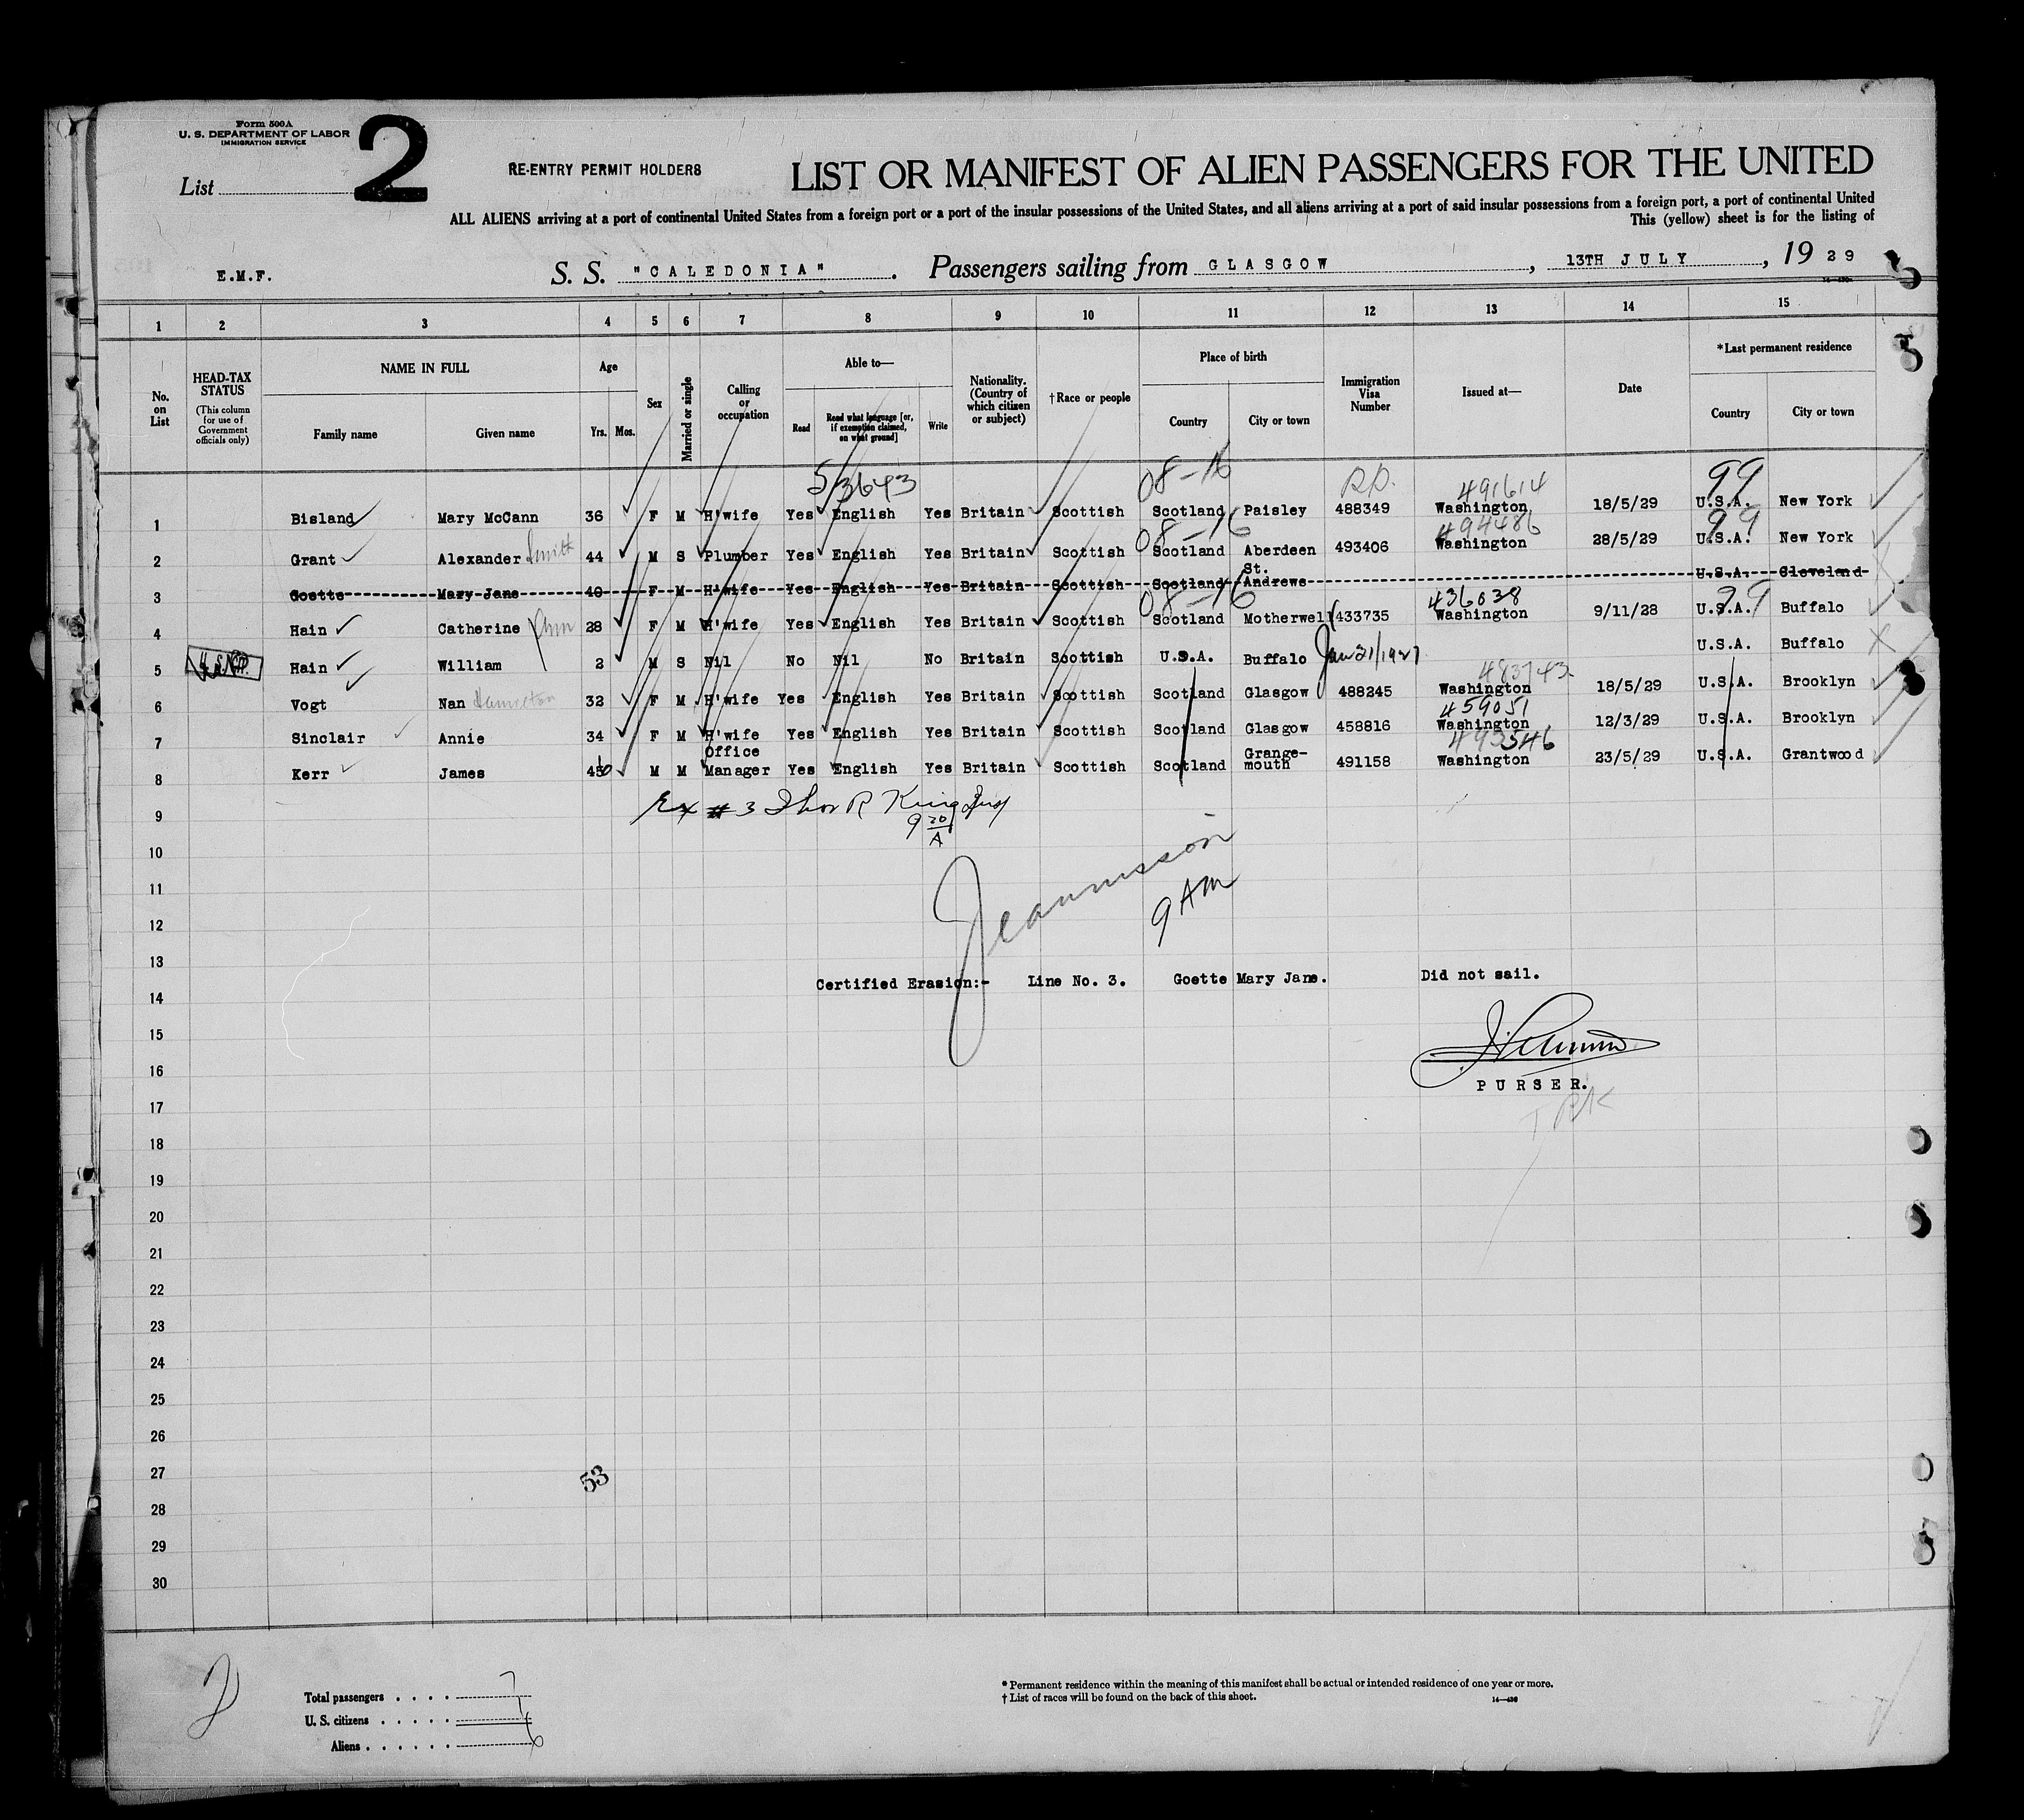 Form 500A
U. S. DEPARTMENT OF LABOR
IMMIGRATION SERVICE
List 2
RE-ENTRY PERMIT HOLDERS
LIST OR MANIFEST OF ALIEN PASSENGERS FOR THE UNITED
ALL ALIENS arriving at a port of continental United States from a foreign port or a port of the insular possessions of the United States, and all aliens arriving at a port of said insular possessions from a foreign port, a port of continental United
This (yellow) sheet is for the listing of
E.M.F. S. S. "CALEDONIA" . Passengers sailing from GLASGOW , 13TH JULY , 19 29
1 2 3 4 5 6 7 8 9 10 11 12 13 14 15
No. on List
HEAD-TAX STATUS
(This column for use of Government officials only)
NAME IN FULL
Family name Given name
Age
Yrs. Mos.
Sex
Married or single
Calling or occupation
Able to—
Read
Read what language [or, if exemption claimed, on what ground]
Write
Nationality. (Country of which citizen or subject)
†Race or people
Place of birth
Country City or town
Immigration Visa Number
Issued at—
Date
*Last permanent residence
Country City or town
53643 08-16 491614 99
1 Bisland Mary McCann 36 F M H'wife Yes English Yes Britain Scottish Scotland Paisley 488349 Washington 18/5/29 U.S.A. New York
08-16 494486 99
2 Grant Alexander Smith 44 M S Plumber Yes English Yes Britain Scottish Scotland Aberdeen 493406 Washington 28/5/29 U.S.A. New York
3 Goette Mary Jane 40 F M H'wife Yes English Yes Britain Scottish Scotland St. Andrews U.S.A. Cleveland
08-16 436038 99
4 Hain Catherine Ann 28 F M H'wife Yes English Yes Britain Scottish Scotland Motherwell 433735 Washington 9/11/28 U.S.A. Buffalo
5 Hain William 2 M S Nil No Nil No Britain Scottish U.S.A. Buffalo Jan 21/1927 U.S.A. Buffalo
483743
6 Vogt Nan Hamilton 32 F M H'wife Yes English Yes Britain Scottish Scotland Glasgow 488245 Washington 18/5/29 U.S.A. Brooklyn
459051
7 Sinclair Annie 34 F M H'wife Yes English Yes Britain Scottish Scotland Glasgow 458816 Washington 12/3/29 U.S.A. Brooklyn
493546
8 Kerr James 45 M M Office Manager Yes English Yes Britain Scottish Scotland Grange-mouth 491158 Washington 23/5/29 U.S.A. Grantwood
9 Ex # 3 Thos R King
9 20/A
10
11
9 AM
12
13
Certified Erasion:- Line No. 3. Goette Mary Jane. Did not sail.
14
15
16
PURSER.
TRK
17
18
19
20
21
22
23
24
25
26
27 53
28
29
30
Total passengers 7
U. S. citizens 1
Aliens 6
* Permanent residence within the meaning of this manifest shall be actual or intended residence of one year or more.
† List of races will be found on the back of this sheet.
14—430